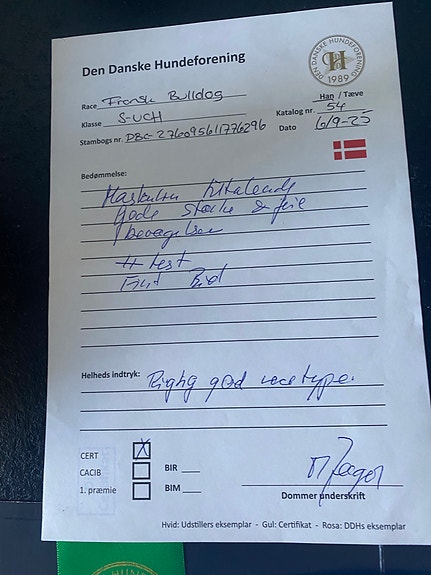 Den Danske Hundeforening
DEN DANSKE HUNDEFORENING
1989
Race Fransk Bulldog
Han / Tæve
Klasse S-UCH
Katalog nr. 54
Stambogs nr. DBC-276095611776296
Dato 6/9-25
Bedømmelse:
Maskulin tiltalende
gode stærke & frie
bevægelser
test
Fint Bid
Helheds indtryk: Rigtig god race type.
CERT X
CACIB
BIR
1. præmie
BIM
Dommer underskrift
Hvid: Udstillers eksemplar - Gul: Certifikat - Rosa: DDHs eksemplar